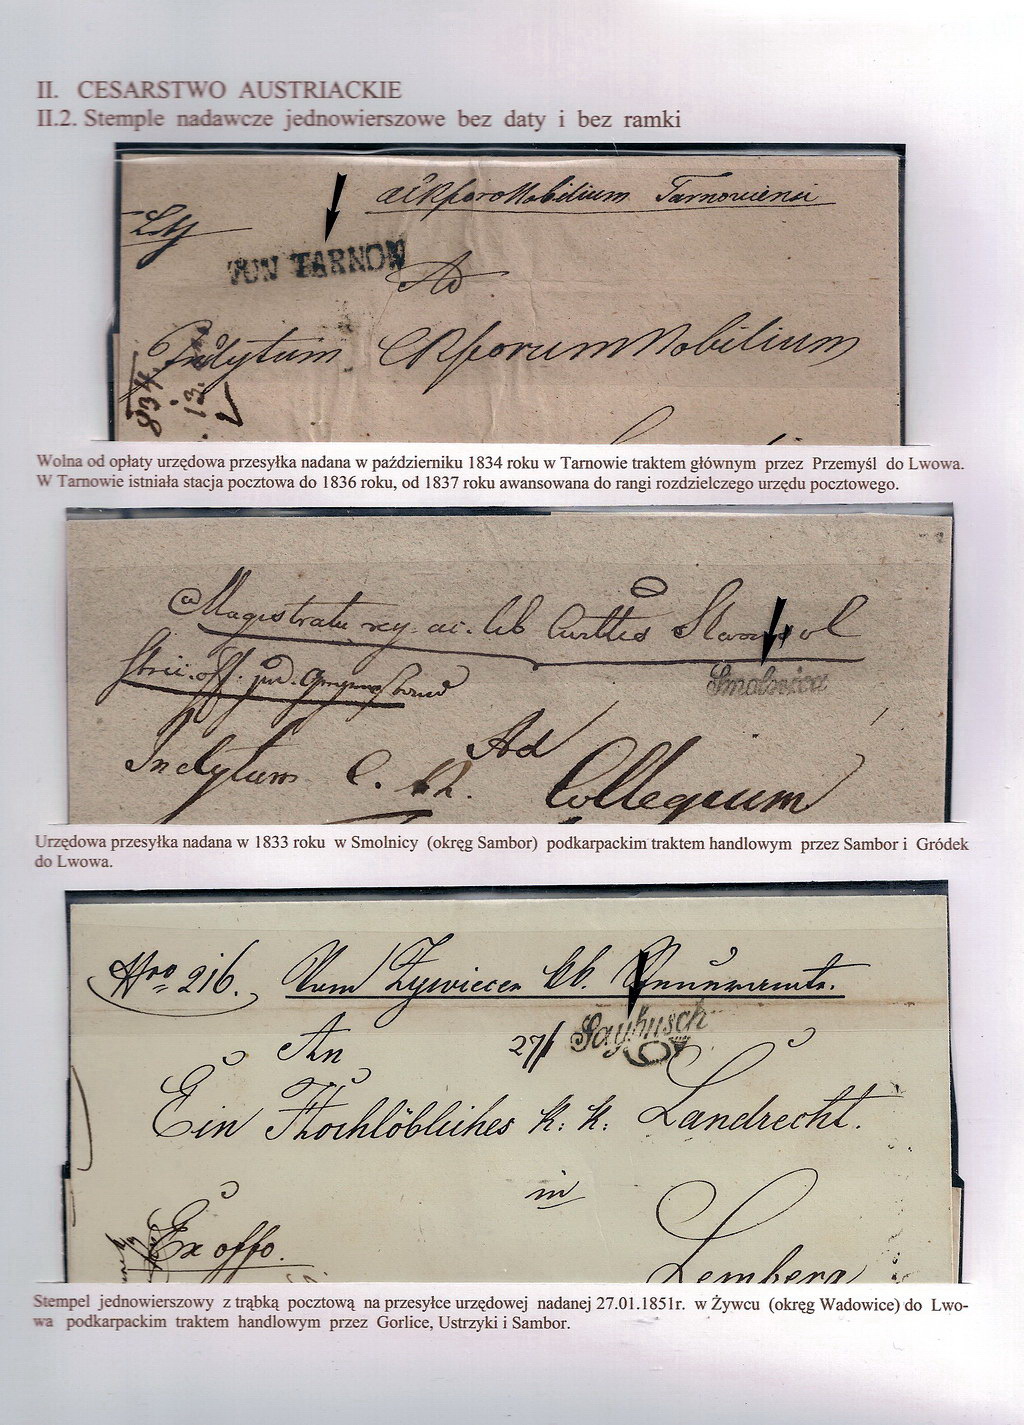 II. CESARSTWO AUSTRIACKIE
II.2. Stemple nadawcze jednowierszowe bez daty i bez ramki
Tarnoviensi
VON TARNOW
Ad
Inclytum CRforum Nobilium
834
13.
Wolna od opłaty urzędowa przesyłka nadana w październiku 1834 roku w Tarnowie traktem głównym przez Przemyśl do Lwowa.
W Tarnowie istniała stacja pocztowa do 1836 roku, od 1837 roku awansowana do rangi rozdzielczego urzędu pocztowego.
a Magistratu reg. ac. lib
Smolnica
Ad
Inclytum C. R. Collegium
Urzędowa przesyłka nadana w 1833 roku w Smolnicy (okręg Sambor) podkarpackim traktem handlowym przez Sambor i Gródek
do Lwowa.
Nro 216. Vom Zywiecer kk.
An 27/1 Saybusch
Ein Hochlöbliches k: k: Landrecht.
in
Ex offo.
Lemberg
Stempel jednowierszowy z trąbką pocztową na przesyłce urzędowej nadanej 27.01.1851r. w Żywcu (okręg Wadowice) do Lwo-
wa podkarpackim traktem handlowym przez Gorlice, Ustrzyki i Sambor.